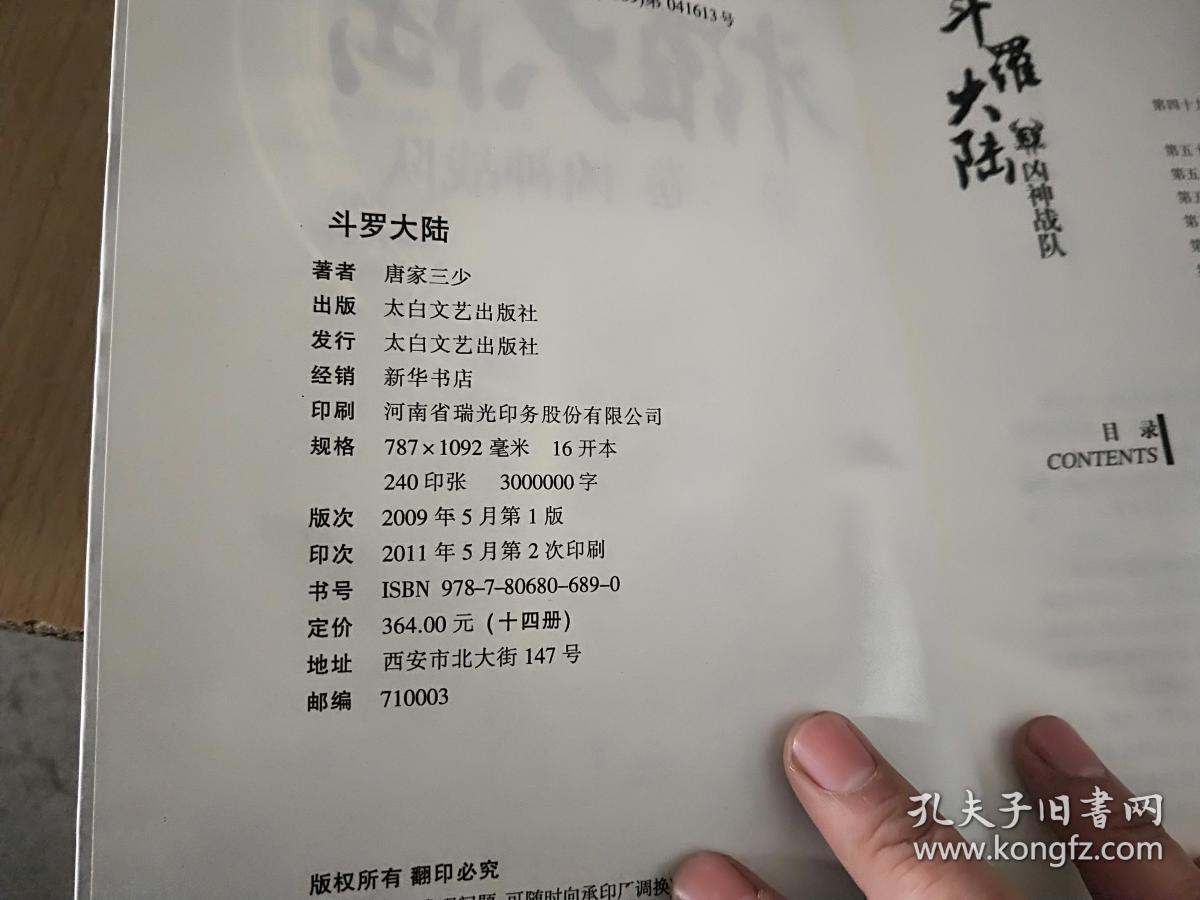 第 041613 号
斗罗大陆
著者 唐家三少
出版 太白文艺出版社
发行 太白文艺出版社
经销 新华书店
印刷 河南省瑞光印务股份有限公司
规格 787×1092 毫米 16 开本
240 印张 3000000 字
版次 2009 年 5 月第 1 版
印次 2011 年 5 月第 2 次印刷
书号 ISBN 978-7-80680-689-0
定价 364.00 元（十四册）
地址 西安市北大街 147 号
邮编 710003
版权所有 翻印必究
可随时向承印厂调换
斗羅大陆
凶神战队
第四十
第五十
第五
第五
第
目录
CONTENTS
孔夫子旧书网
www.kongfz.com